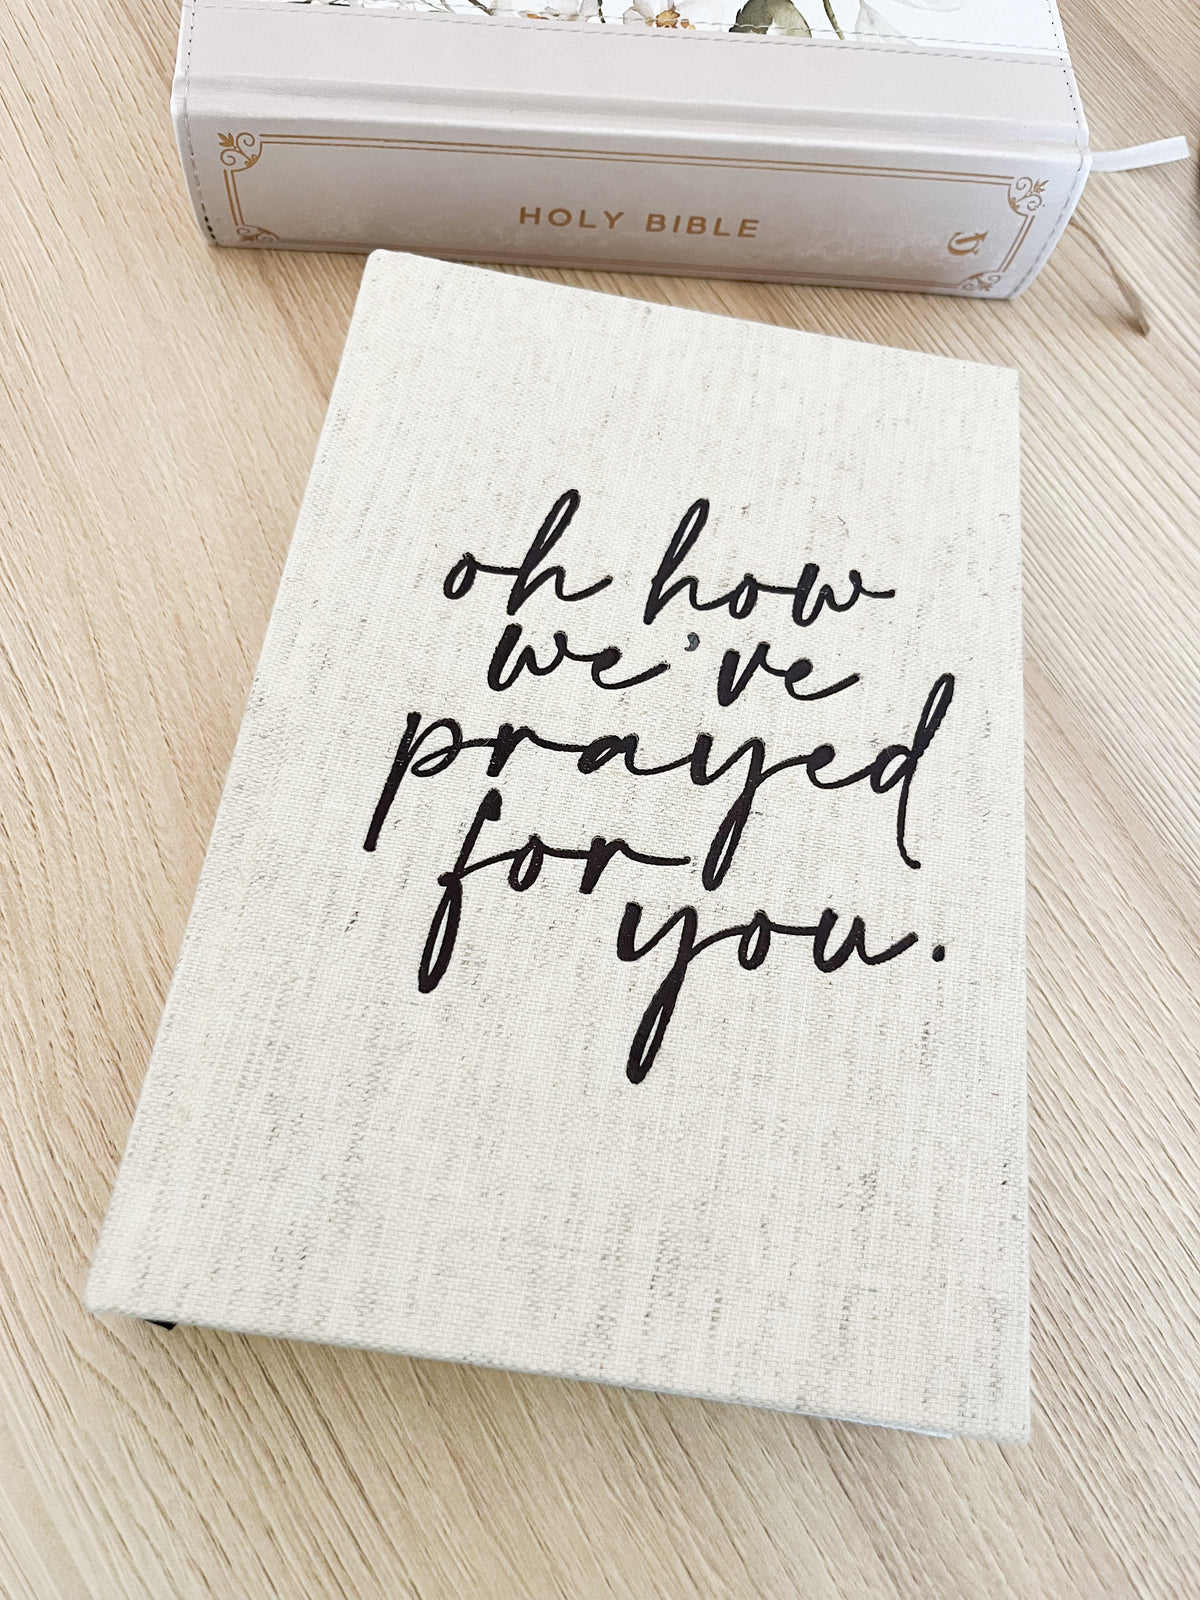 HOLY BIBLE
oh how
we've
prayed
for you.